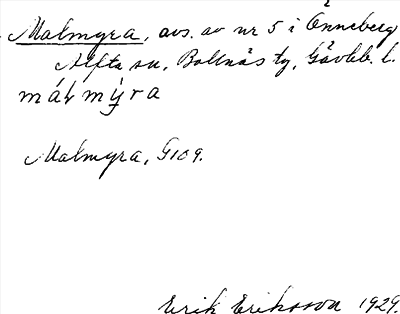 Malmyra, avs. av nr 5 i Önneberg
Alfta sn, Bollnäs tg, Gävleb. l.
málmýra
Malmyra, G109.
Erik Eriksson 1929.